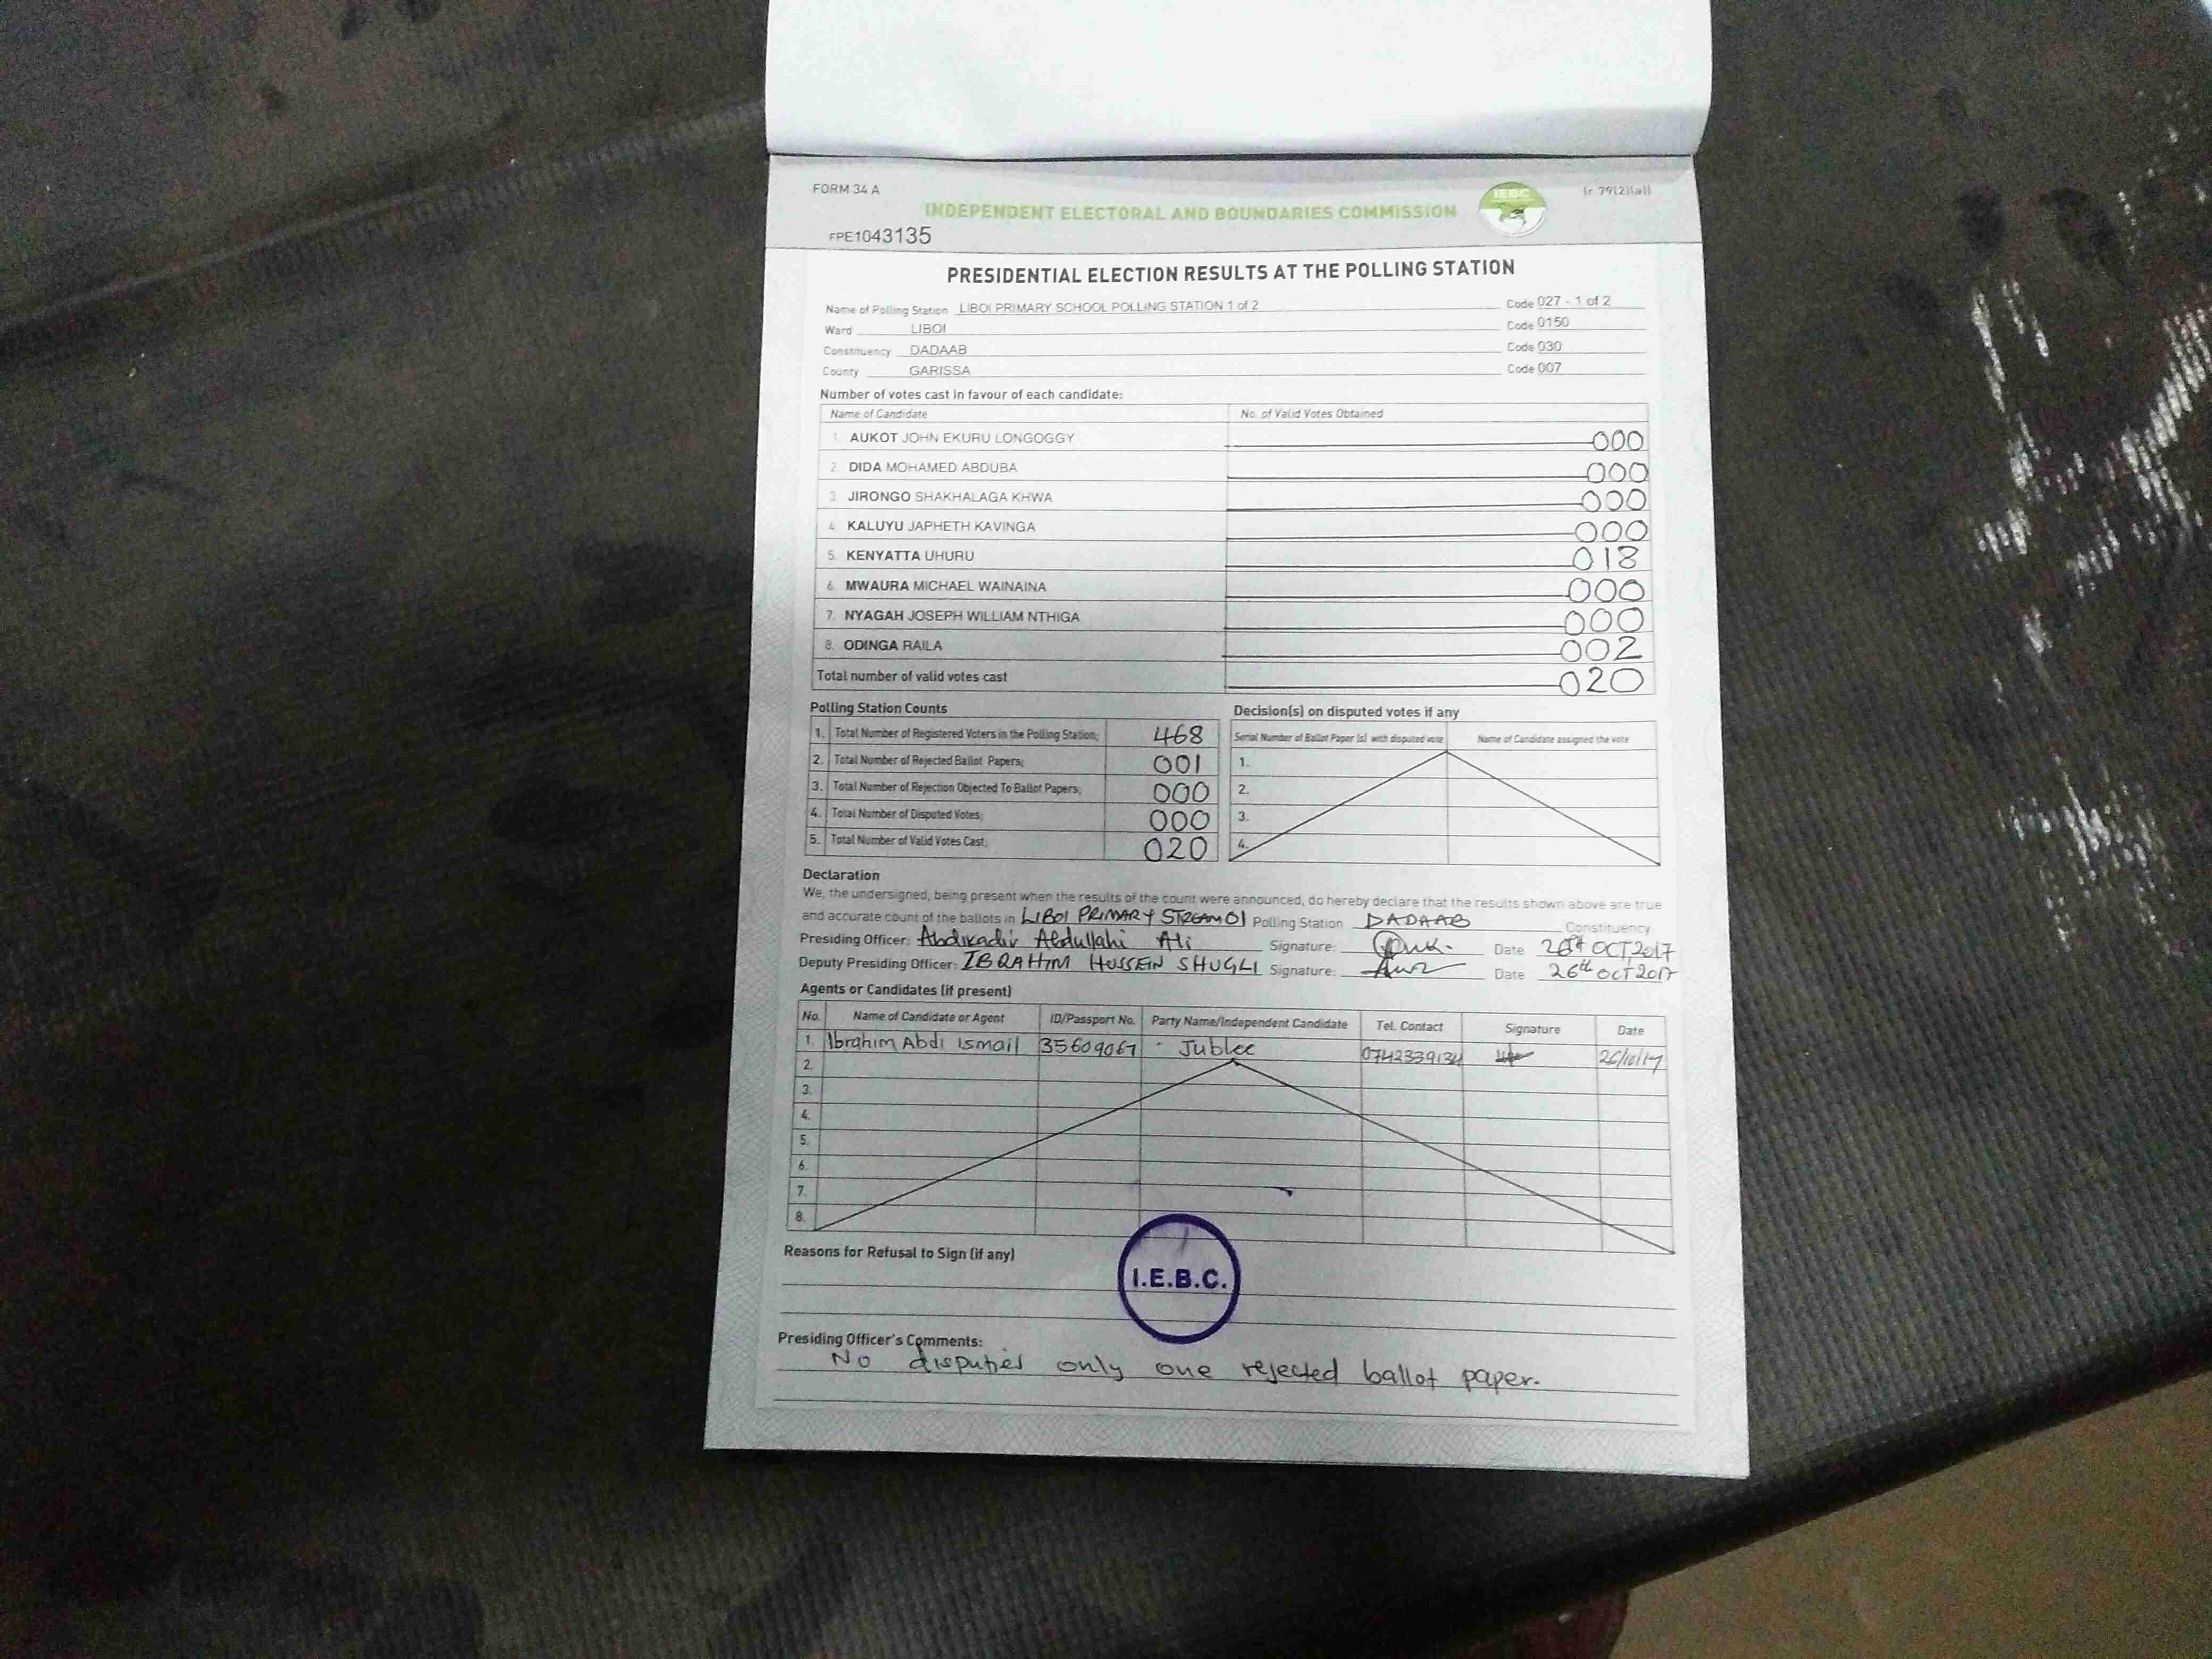 FORM 34 A
IEBC
(r. 79(2)(a))
INDEPENDENT ELECTORAL AND BOUNDARIES COMMISSION
FPE1043135
PRESIDENTIAL ELECTION RESULTS AT THE POLLING STATION
Name of Polling Station LIBOI PRIMARY SCHOOL POLLING STATION 1 of 2 Code 027 - 1 of 2
Ward LIBOI Code 0150
Constituency DADAAB Code 030
County GARISSA Code 007
Number of votes cast in favour of each candidate:
Name of Candidate No. of Valid Votes Obtained
1. AUKOT JOHN EKURU LONGOGGY 000
2. DIDA MOHAMED ABDUBA 000
3. JIRONGO SHAKHALAGA KHWA 000
4. KALUYU JAPHETH KAVINGA 000
5. KENYATTA UHURU 018
6. MWAURA MICHAEL WAINAINA 000
7. NYAGAH JOSEPH WILLIAM NTHIGA 000
8. ODINGA RAILA 002
Total number of valid votes cast 020
Polling Station Counts
1. Total Number of Registered Voters in the Polling Station; 468
2. Total Number of Rejected Ballot Papers; 001
3. Total Number of Rejection Objected To Ballot Papers; 000
4. Total Number of Disputed Votes; 000
5. Total Number of Valid Votes Cast; 020
Decision(s) on disputed votes if any
Serial Number of Ballot Paper (s) with disputed vote Name of Candidate assigned the vote
1.
2.
3.
4.
Declaration
We, the undersigned, being present when the results of the count were announced, do hereby declare that the results shown above are true
and accurate count of the ballots in LIBOI PRIMARY STREAM 01 Polling Station DADAAB Constituency
Presiding Officer: Abdikadir Abdullahi Ali Signature: Date 26th OCT, 2017
Deputy Presiding Officer: IBRAHIM HUSSEIN SHUGLI Signature: Date 26th OCT 2017
Agents or Candidates (if present)
No. Name of Candidate or Agent ID/Passport No. Party Name/Independent Candidate Tel. Contact Signature Date
1. Ibrahim Abdi Ismail 35609067 Jublee 0742339134 26/10/17
2.
3.
4.
5.
6.
7.
8.
Reasons for Refusal to Sign (if any)
I.E.B.C.
Presiding Officer's Comments:
No disputies only one rejected ballot paper.